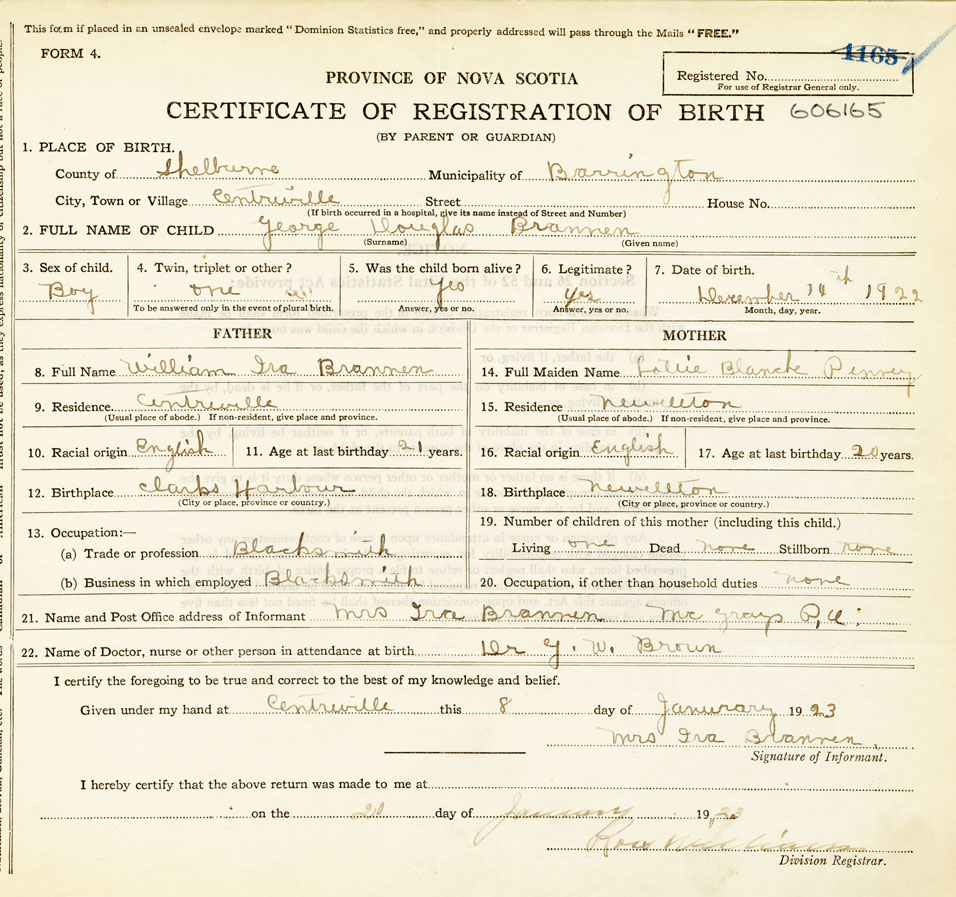 This form if placed in an unsealed envelope marked "Dominion Statistics free," and properly addressed will pass through the Mails "FREE."
FORM 4.
1165
Registered No.
For use of Registrar General only.
PROVINCE OF NOVA SCOTIA
CERTIFICATE OF REGISTRATION OF BIRTH 606165
(BY PARENT OR GUARDIAN)
1. PLACE OF BIRTH.
County of Shelburne Municipality of Barrington
City, Town or Village Centreville Street House No.
(If birth occurred in a hospital, give its name instead of Street and Number)
2. FULL NAME OF CHILD George Douglas Brannen
(Surname) (Given name)
3. Sex of child. 4. Twin, triplet or other? 5. Was the child born alive? 6. Legitimate? 7. Date of birth.
Boy one Yes yes December 14th 1922
To be answered only in the event of plural birth. Answer, yes or no. Answer, yes or no. Month, day, year.
FATHER MOTHER
8. Full Name William Ira Brannen 14. Full Maiden Name Blanche Penney
9. Residence Centreville 15. Residence Newellton
(Usual place of abode.) If non-resident, give place and province. (Usual place of abode.) If non-resident, give place and province.
10. Racial origin English 11. Age at last birthday 21 years. 16. Racial origin English 17. Age at last birthday 20 years.
12. Birthplace Clarks Harbour 18. Birthplace Newellton
(City or place, province or country.) (City or place, province or country.)
13. Occupation:— 19. Number of children of this mother (including this child.)
(a) Trade or profession Blacksmith Living one Dead none Stillborn none
(b) Business in which employed Blacksmith 20. Occupation, if other than household duties none
21. Name and Post Office address of Informant Mrs Ira Brannen Mc Grays
22. Name of Doctor, nurse or other person in attendance at birth Dr G. W. Brown
I certify the foregoing to be true and correct to the best of my knowledge and belief.
Given under my hand at Centreville this 8 day of Janurary 1923
Mrs Ira Brannen
Signature of Informant.
I hereby certify that the above return was made to me at
on the 20 day of January 1923
Division Registrar.